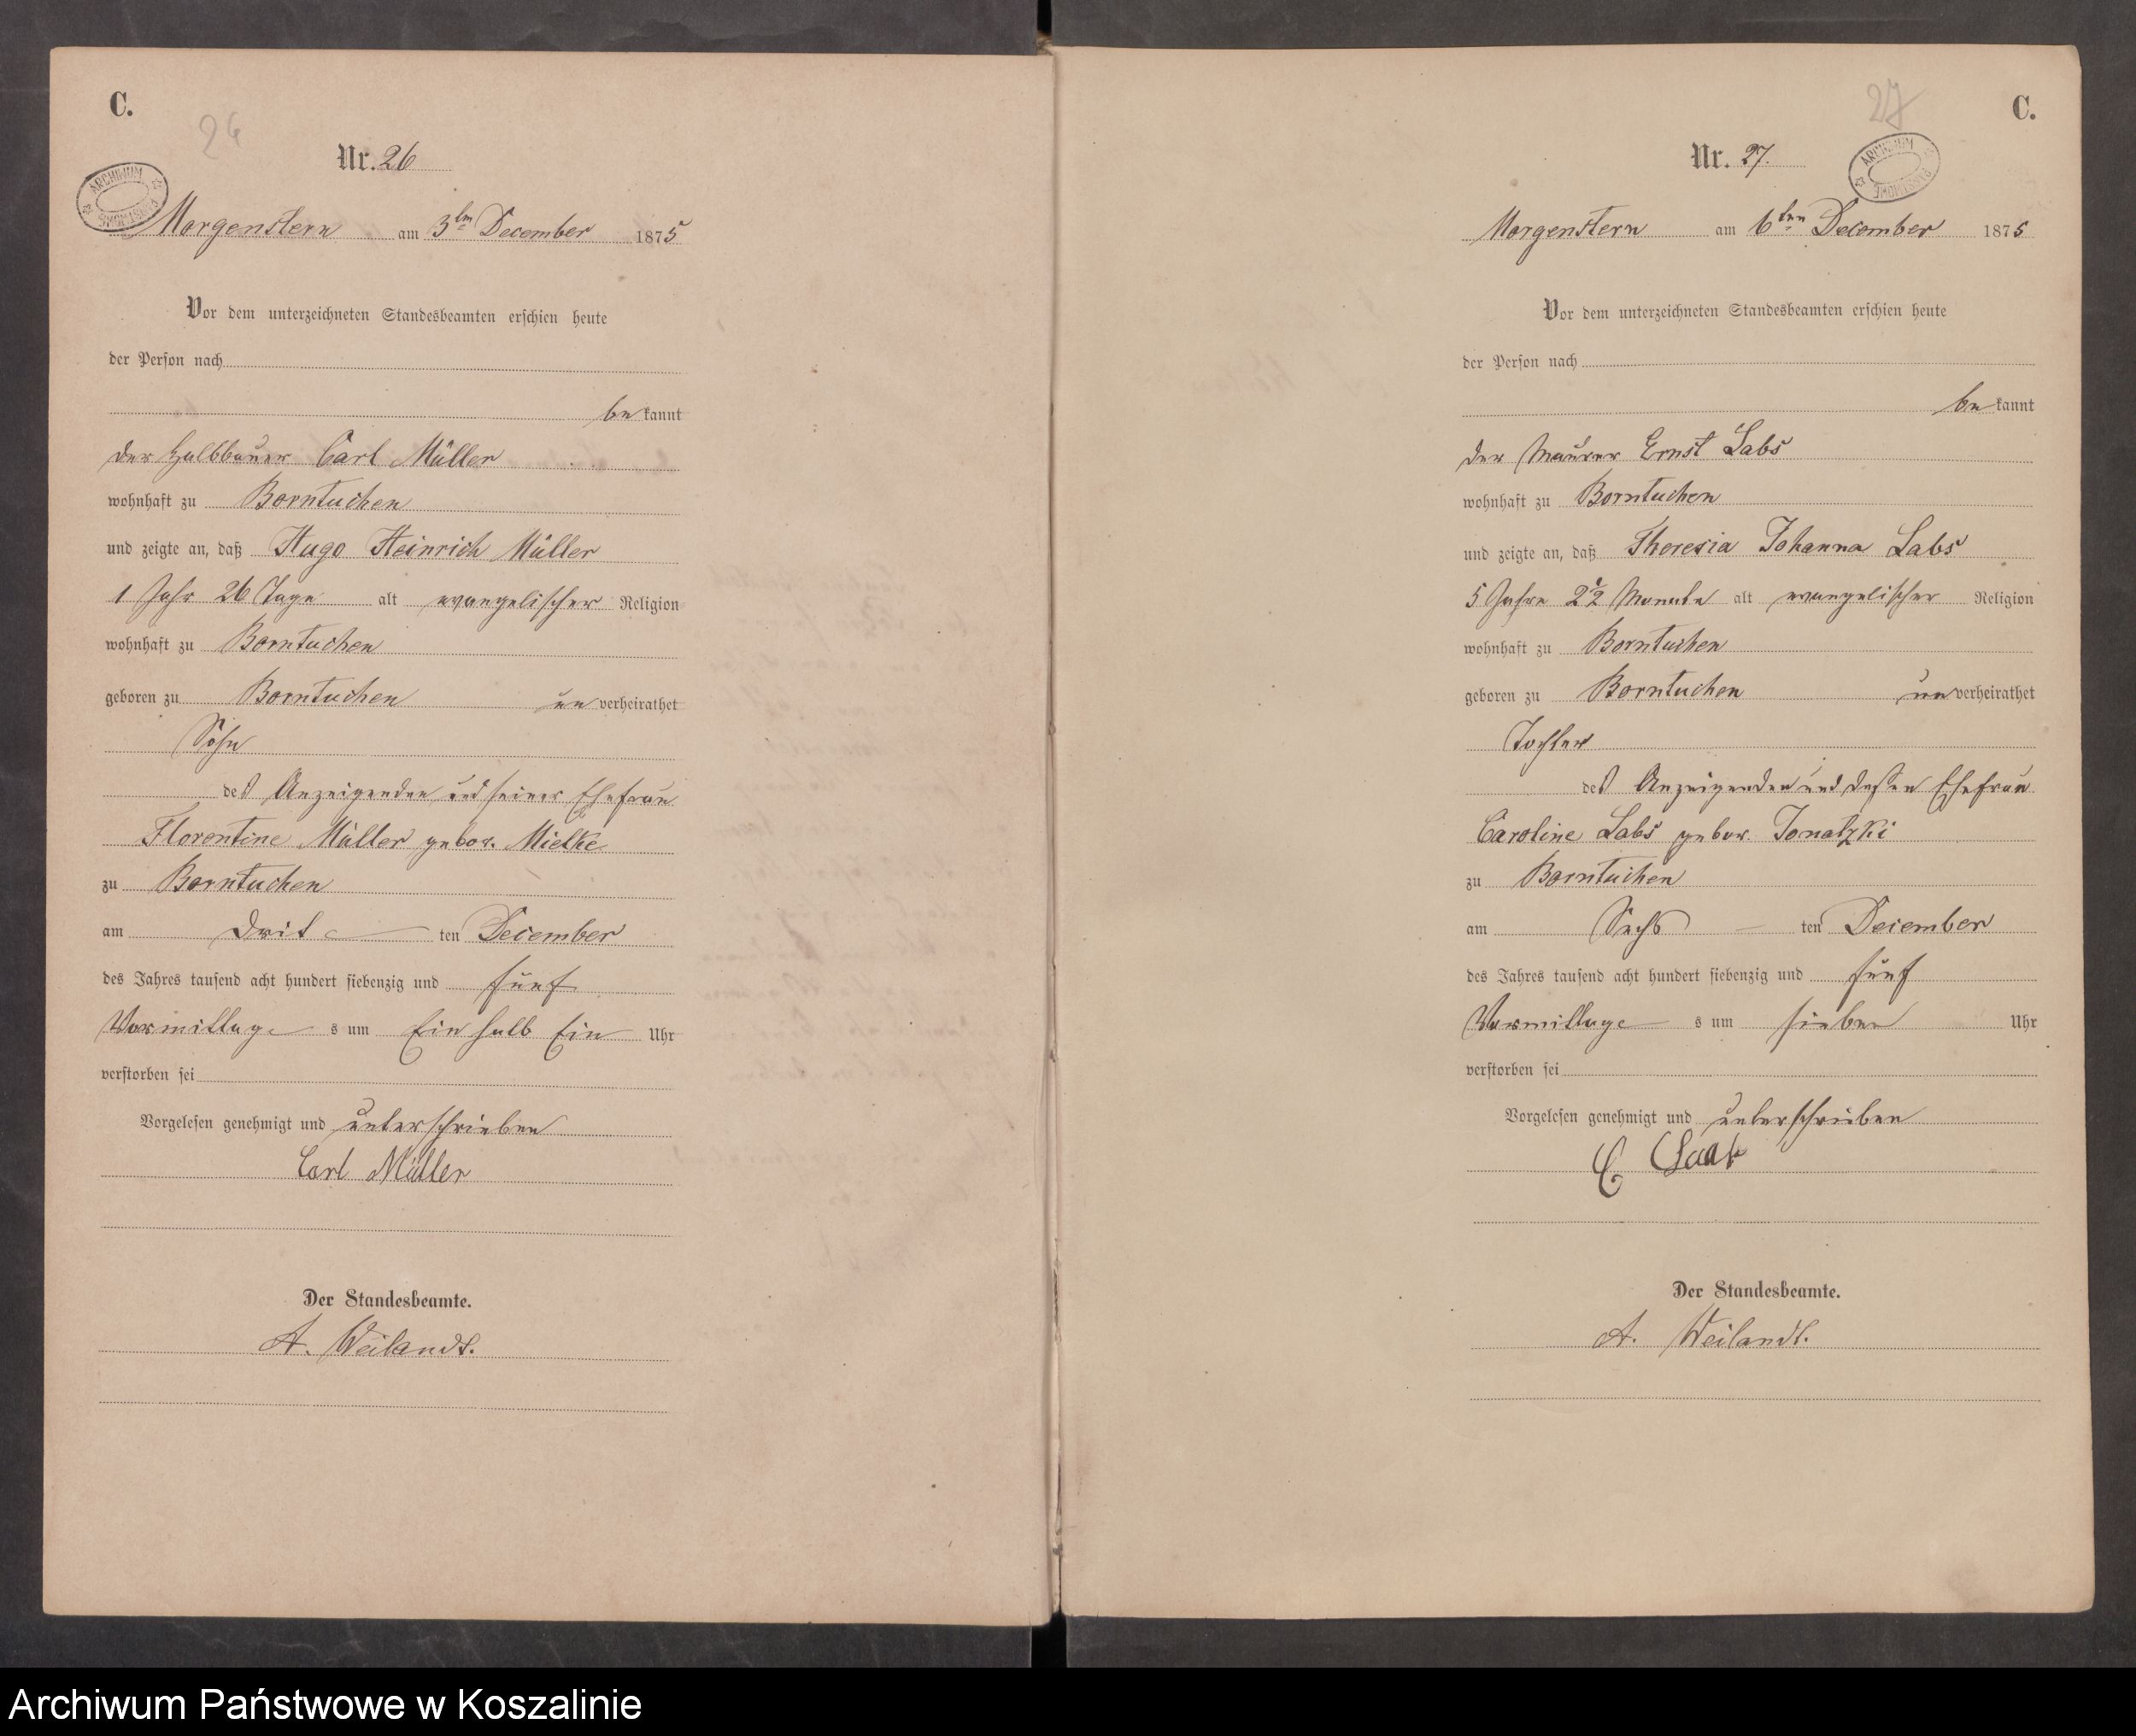 C.
26
Nr. 26
ARCHIWUM PAŃSTWOWE
Morgenstern am 3ten December 1875
Vor dem unterzeichneten Standesbeamten erschien heute
der Person nach
be kannt
der Halbbauer Carl Müller
wohnhaft zu Borntuchen
und zeigte an, daß Hugo Heinrich Müller
1 Jahr 26 Tage alt evangelischer Religion
wohnhaft zu Borntuchen
geboren zu Borntuchen un verheirathet
Sohn
des Anzeigenden und seiner Ehefrau
Florentine Müller gebor. Mielke
zu Borntuchen
am Drit ten December
des Jahres tausend acht hundert siebenzig und fünf
Vormittag s um Ein halb Ein Uhr
verstorben sei
Vorgelesen genehmigt und unterschrieben
Carl Müller
Der Standesbeamte.
A. Weilandt.
27
C.
Nr. 27.
ARCHIWUM PAŃSTWOWE
Morgenstern am 6ten December 1875
Vor dem unterzeichneten Standesbeamten erschien heute
der Person nach
be kannt
der Maurer Ernst Labs
wohnhaft zu Borntuchen
und zeigte an, daß Theresia Johanna Labs
5 Jahre 2½ Monate alt evangelischer Religion
wohnhaft zu Borntuchen
geboren zu Borntuchen un verheirathet
Tochter
des Anzeigenden und dessen Ehefrau
Caroline Labs gebor. Jonatzki
zu Borntuchen
am Sechs ten December
des Jahres tausend acht hundert siebenzig und fünf
Vormittage s um sieben Uhr
verstorben sei
Vorgelesen genehmigt und unterschrieben
E
Der Standesbeamte.
A. Weilandt.
Archiwum Państwowe w Koszalinie